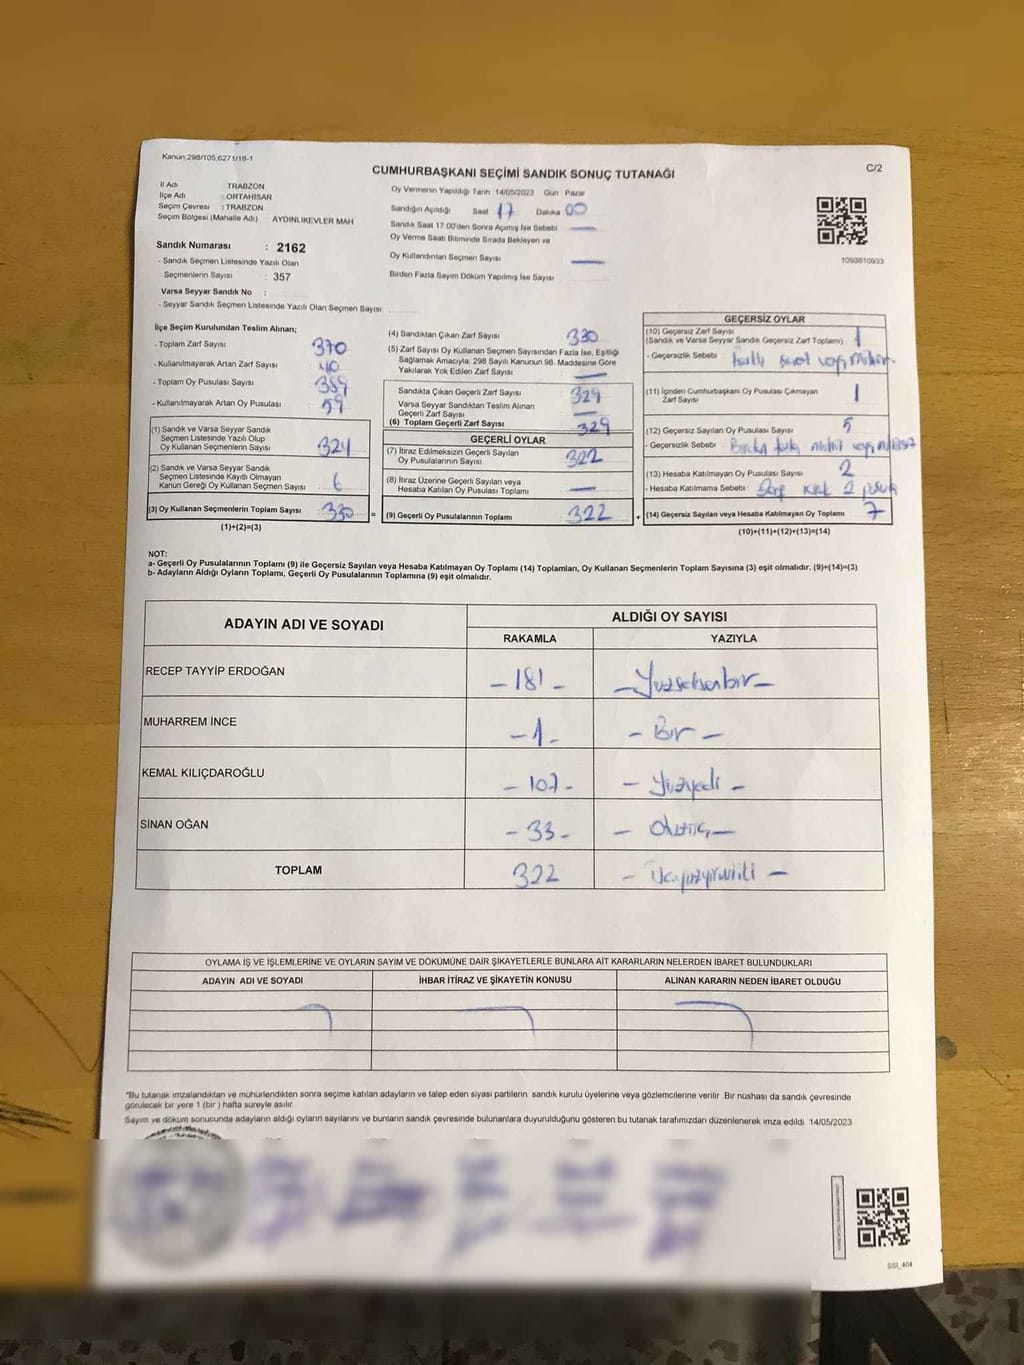 Kanun.298/105,6271/16-1
C/2
CUMHURBAŞKANI SEÇİMİ SANDIK SONUÇ TUTANAĞI
İl Adı : TRABZON
İlçe Adı : ORTAHİSAR
Seçim Çevresi : TRABZON
Seçim Bölgesi (Mahalle Adı) AYDINLIKEVLER MAH
Sandık Numarası : 2162
- Sandık Seçmen Listesinde Yazılı Olan
Seçmenlerin Sayısı : 357
Varsa Seyyar Sandık No :
- Seyyar Sandık Seçmen Listesinde Yazılı Olan Seçmen Sayısı
Oy Vermenin Yapıldığı Tarih 14/05/2023 Gün Pazar
Sandığın Açıldığı Saat 17 Dakika 00
Sandık Saat 17.00'den Sonra Açımış İse Sebebi
Oy Verme Saati Bitiminde Sırada Bekleyen ve
Oy Kullandırılan Seçmen Sayısı
Birden Fazla Sayım Döküm Yapılmış İse Sayısı
1093810933
İlçe Seçim Kurulundan Teslim Alınan;
- Toplam Zarf Sayısı 370
- Kullanılmayarak Artan Zarf Sayısı 40
- Toplam Oy Pusulası Sayısı
- Kullanılmayarak Artan Oy Pusulası 59
(1) Sandık ve Varsa Seyyar Sandık
Seçmen Listesinde Yazılı Olup
Oy Kullanan Seçmenlerin Sayısı 324
(2) Sandık ve Varsa Seyyar Sandık
Seçmen Listesinde Kayıtlı Olmayan
Kanun Gereği Oy Kullanan Seçmen Sayısı 6
(3) Oy Kullanan Seçmenlerin Toplam Sayısı 330 =
(1)+(2)=(3)
(4) Sandıktan Çıkan Zarf Sayısı 330
(5) Zarf Sayısı Oy Kullanan Seçmen Sayısından Fazla İse, Eşitliği
Sağlamak Amacıyla; 298 Sayılı Kanunun 98. Maddesine Göre
Yakılarak Yok Edilen Zarf Sayısı
Sandıkta Çıkan Geçerli Zarf Sayısı 329
Varsa Seyyar Sandıktan Teslim Alınan
Geçerli Zarf Sayısı
(6) Toplam Geçerli Zarf Sayısı 329
GEÇERLİ OYLAR
(7) İtiraz Edilmeksizin Geçerli Sayılan
Oy Pusulalarının Sayısı 322
(8) İtiraz Üzerine Geçerli Sayılan veya
Hesaba Katılan Oy Pusulası Toplamı
(9) Geçerli Oy Pusulalarının Toplamı 322 +
GEÇERSİZ OYLAR
(10) Geçersiz Zarf Sayısı
(Sandık ve Varsa Seyyar Sandık Geçersiz Zarf Toplamı) 1
- Geçersizlik Sebebi :
(11) İçinden Cumhurbaşkanı Oy Pusulası Çıkmayan
Zarf Sayısı 1
(12) Geçersiz Sayılan Oy Pusulası Sayısı 5
- Geçersizlik Sebebi :
(13) Hesaba Katılmayan Oy Pusulası Sayısı 2
- Hesaba Katılmama Sebebi :
(14) Geçersiz Sayılan veya Hesaba Katılmayan Oy Toplamı 7
(10)+(11)+(12)+(13)=(14)
NOT:
a- Geçerli Oy Pusulalarının Toplamı (9) ile Geçersiz Sayılan veya Hesaba Katılmayan Oy Toplamı (14) Toplamları, Oy Kullanan Seçmenlerin Toplam Sayısına (3) eşit olmalıdır. (9)+(14)=(3)
b- Adayların Aldığı Oyların Toplamı, Geçerli Oy Pusulalarının Toplamına (9) eşit olmalıdır.
ADAYIN ADI VE SOYADI
ALDIĞI OY SAYISI
RAKAMLA YAZIYLA
RECEP TAYYİP ERDOĞAN -181- -Yüzseksenbir-
MUHARREM İNCE -1- -Bir-
KEMAL KILIÇDAROĞLU -107- -Yüzyedi-
SİNAN OĞAN -33- -Otuzüç-
TOPLAM 322 -Üçyüzyirmiiki-
OYLAMA İŞ VE İŞLEMLERİNE VE OYLARIN SAYIM VE DÖKÜMÜNE DAİR ŞİKAYETLERLE BUNLARA AİT KARARLARIN NELERDEN İBARET BULUNDUKLARI
ADAYIN ADI VE SOYADI İHBAR İTİRAZ VE ŞİKAYETİN KONUSU ALINAN KARARIN NEDEN İBARET OLDUĞU
"Bu tutanak imzalandıktan ve mühürlendikten sonra seçime katılan adayların ve talep eden siyasi partilerin sandık kurulu üyelerine veya gözlemcilerine verilir. Bir nüshası da sandık çevresinde
görülecek bir yere 1 (bir) hafta süreyle asılır.
Sayım ve döküm sonucunda adayların aldığı oyların sayılarını ve bunların sandık çevresinde bulunanlara duyurulduğunu gösteren bu tutanak tarafımızdan düzenlenerek imza edildi 14/05/2023